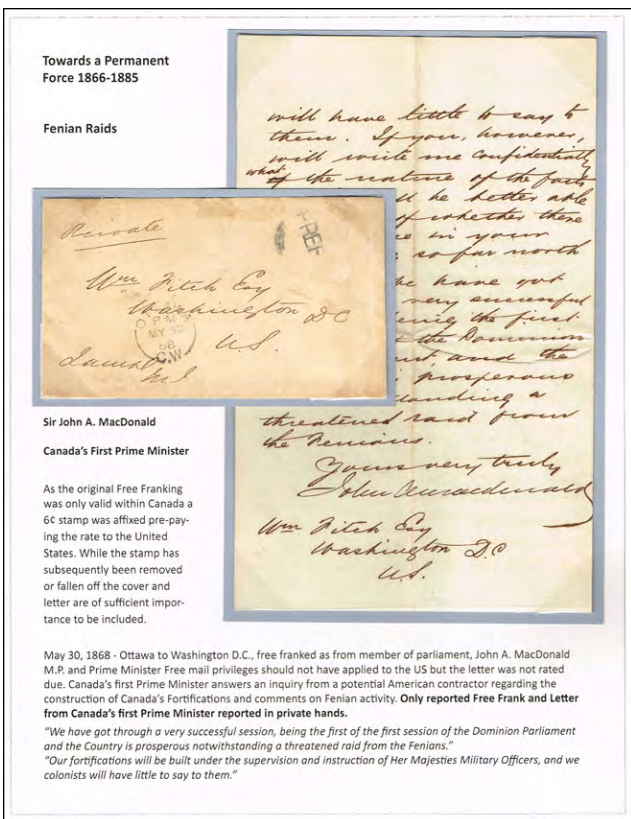 Towards a Permanent
Force 1866-1885
Fenian Raids
will have little to say to
them. If you, however,
will write me confidentially
what
of the nature of the facts
ll be better able
of whether there
in your
so far north
have got
very successful
ing the first
the Dominion
and the
prosperous
anding a
threatened raid from
the Fenians.
Yours very truly
John A Macdonald
Wm Fitch Esq
Washington D.C
U.S.
Private
FREE
Wm Fitch Esq
Washington DC
U.S.
PM
MY 30
68
C.W.
Sir John A. MacDonald
Canada's First Prime Minister
As the original Free Franking
was only valid within Canada a
6¢ stamp was affixed pre-pay-
ing the rate to the United
States. While the stamp has
subsequently been removed
or fallen off the cover and
letter are of sufficient impor-
tance to be included.
May 30, 1868 - Ottawa to Washington D.C., free franked as from member of parliament, John A. MacDonald
M.P. and Prime Minister Free mail privileges should not have applied to the US but the letter was not rated
due. Canada's first Prime Minister answers an inquiry from a potential American contractor regarding the
construction of Canada's Fortifications and comments on Fenian activity. Only reported Free Frank and Letter
from Canada's first Prime Minister reported in private hands.
"We have got through a very successful session, being the first of the first session of the Dominion Parliament
and the Country is prosperous notwithstanding a threatened raid from the Fenians."
"Our fortifications will be built under the supervision and instruction of Her Majesties Military Officers, and we
colonists will have little to say to them."